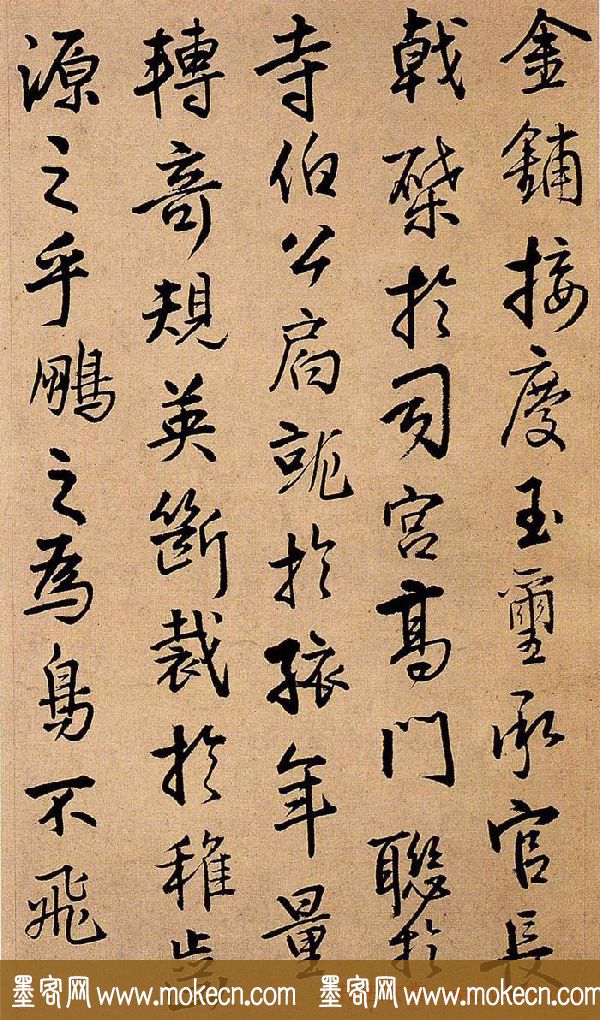 金鋪接慶玉璽承官長
戟磔於司宮高門聯於
寺伯公扃於孩年量
轉奇規英斷裁於稚齒
源之乎鵬之為鳥不飛
墨客网 www.mokecn.com 墨客网 www.mokecn.com